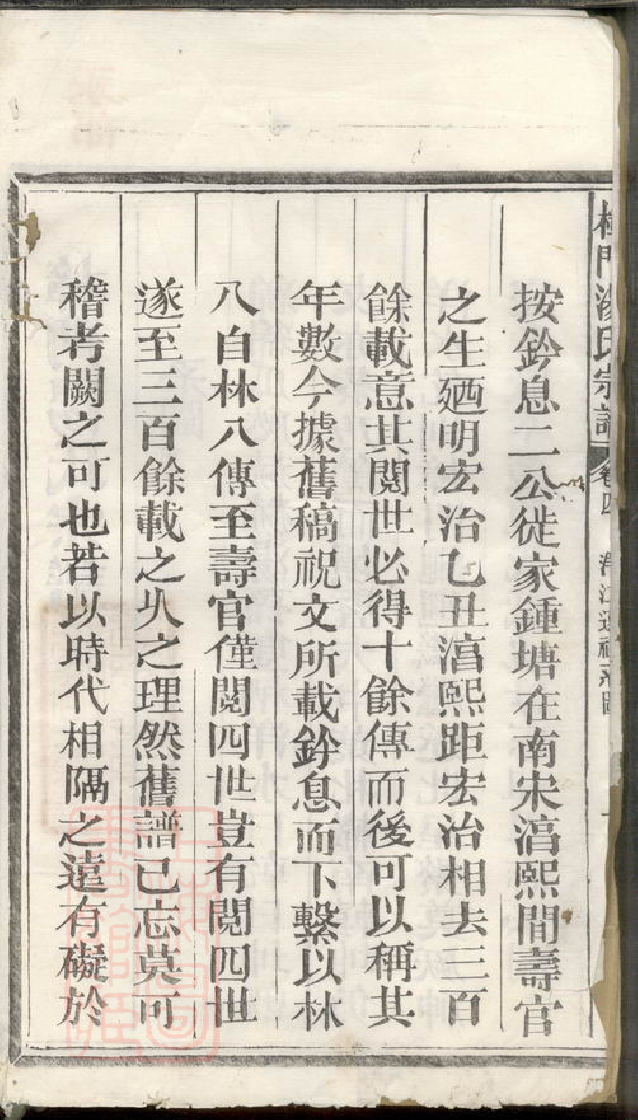 門湯氏宗譜 卷四
按鈐息二公徙家鍾塘在南宋淳熙間壽官
之生廼明宏治乙丑淳熙距宏治相去三百
餘載意其閱世必得十餘傳而後可以稱其
年數今據舊稿祝文所載鈐息而下繫以林
八自林八傳至壽官僅閱四世豈有閱四世
遂至三百餘載之久之理然舊譜已忘莫可
稽考闕之可也若以時代相隔之遠有礙於